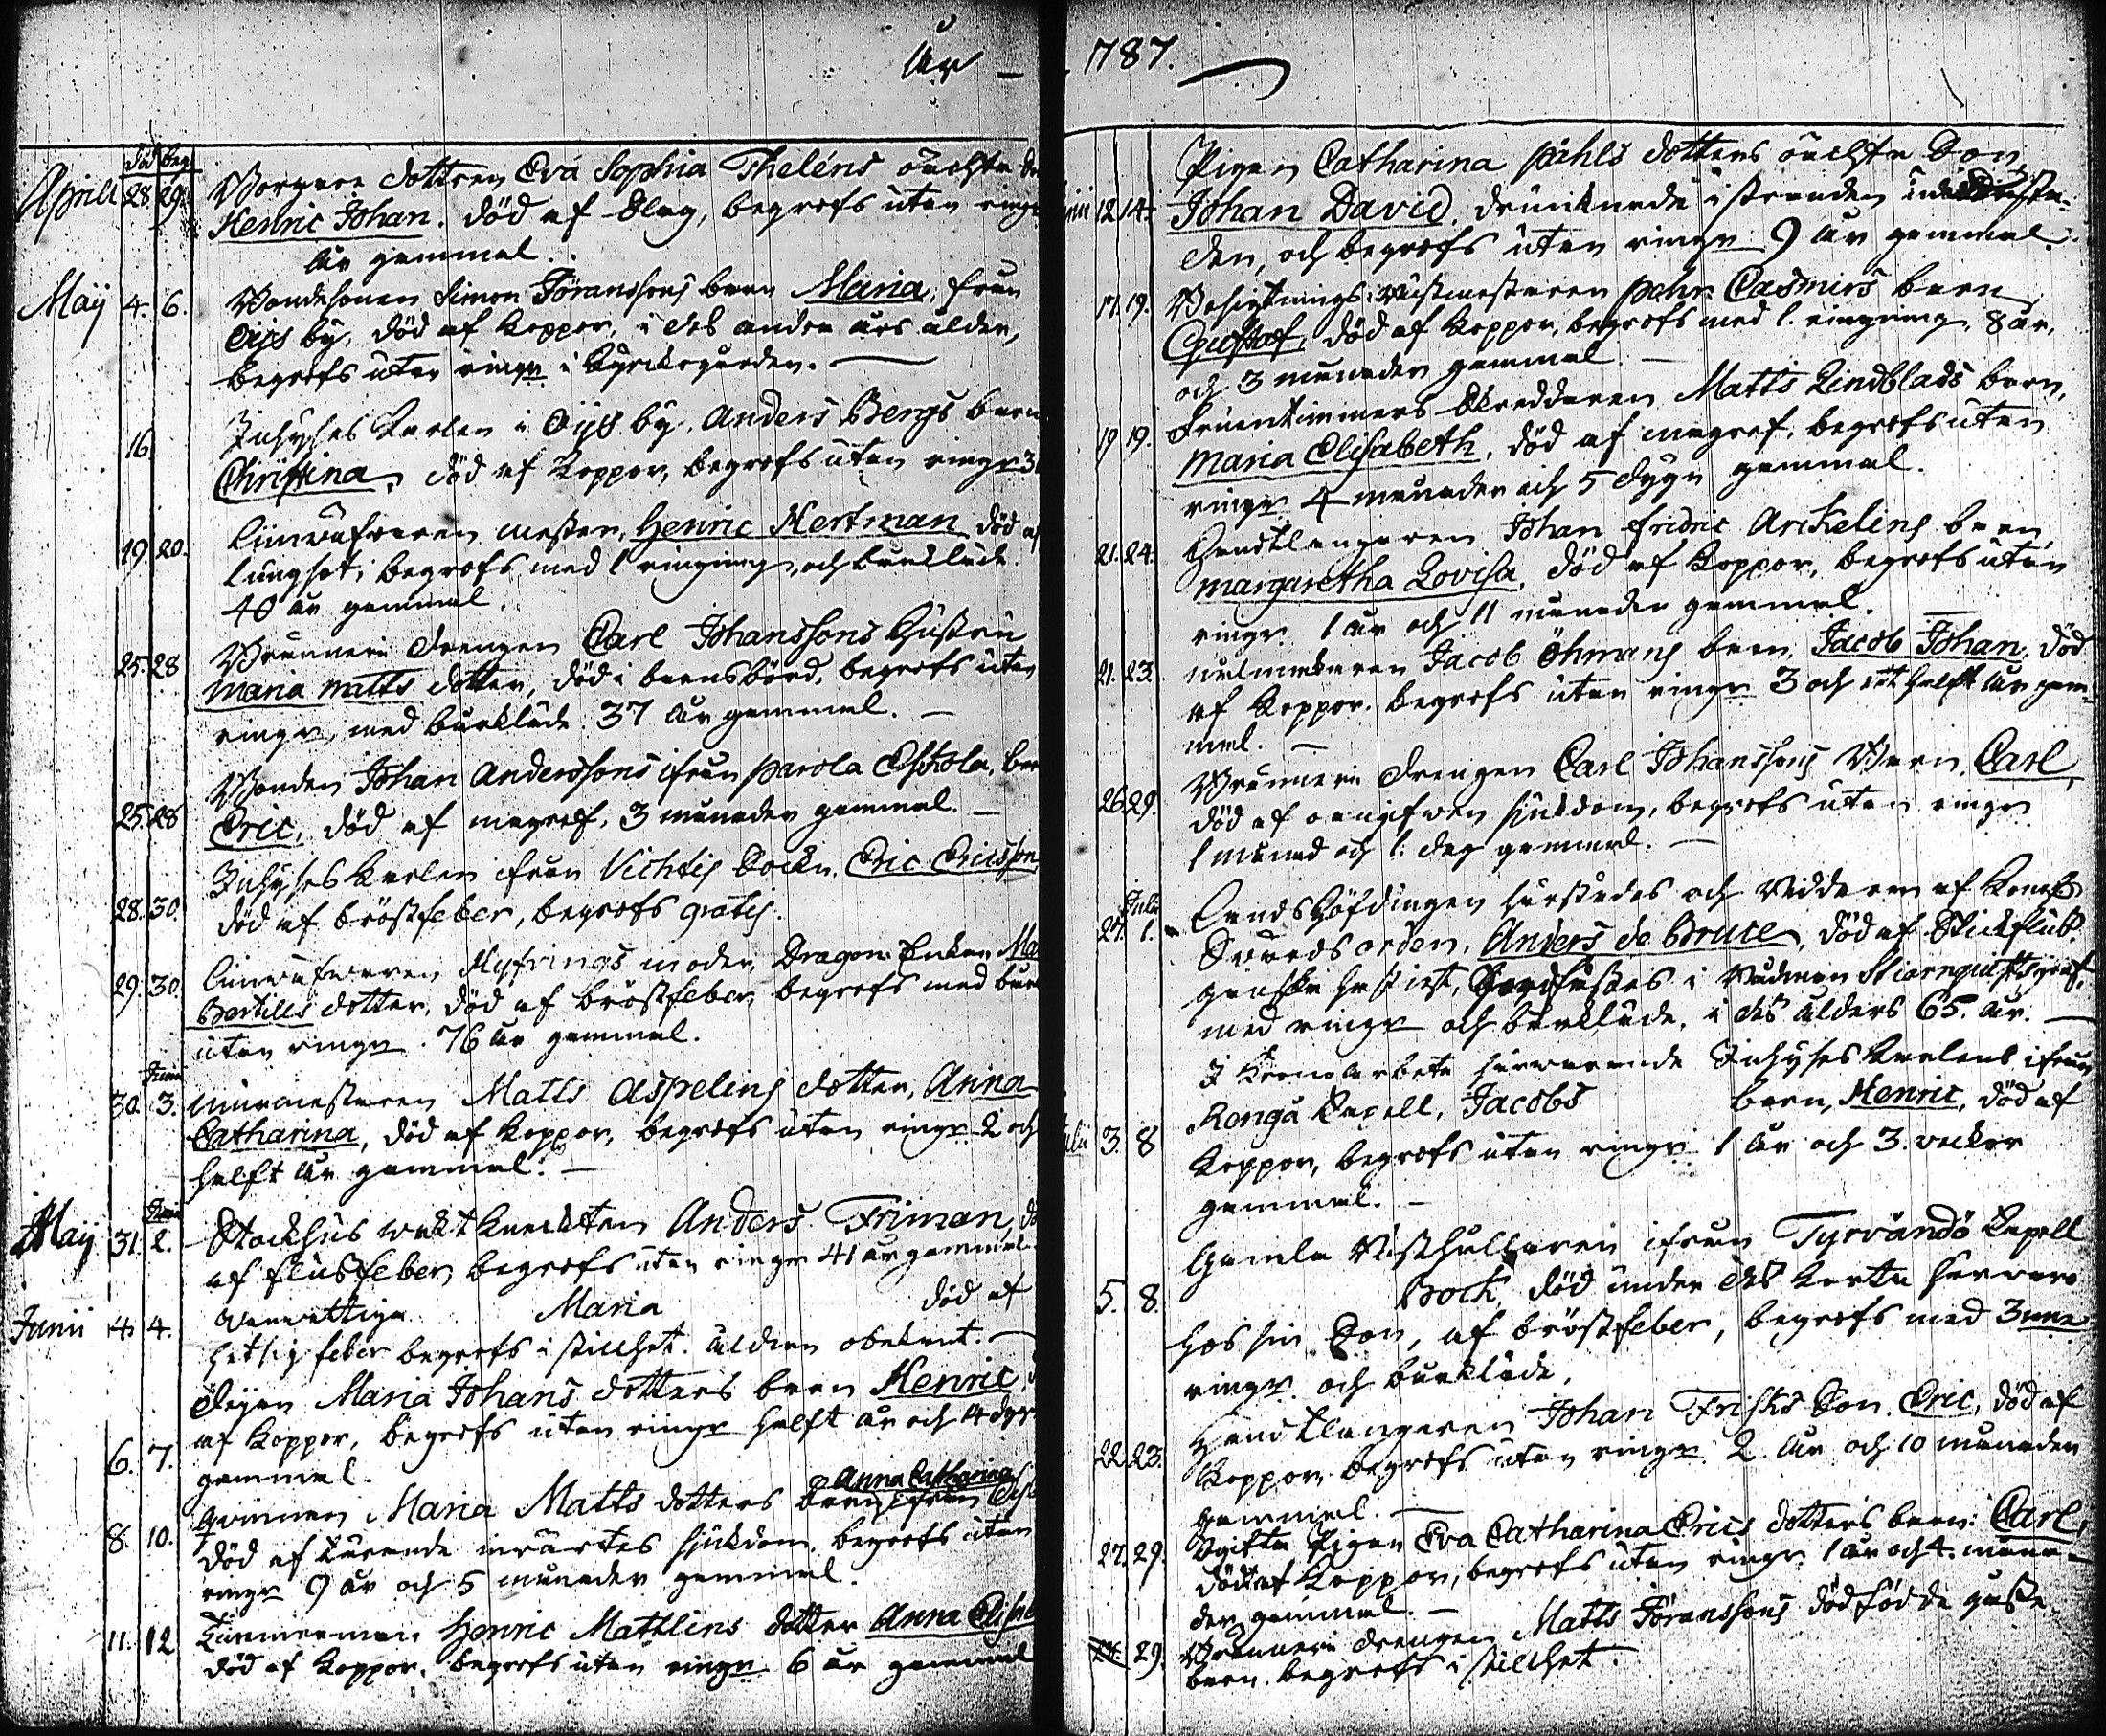 År 1787.
död begr.
Aprill 28. 29. Borgare dottren Eva Sophia Theléns oächta
Henric Johan. död af slag, begrofs utan ringn
år gammal.
Maÿ 4. 6. Bondesonen Simon Göranssons barn Maria, från
Ojs by, död af koppor, i des andra års ålder,
begrofs utan ringn i kyrkogården.
16 Inhyses Karlen i Ojs by, Anders Bergs barn
Christina, död af koppor, begrofs utan ringn 3
19. 20. Henric Hertman död af
lungsot, begrofs med 1 ringning, och bårkläde.
40 år gammal.
25. 28 Brännerie drengen Carl Johanssons Hustru
Maria Matts dotter, död i barnsbörd, begrofs utan
ringn, med bårkläde. 37 år gammal.
25. 28 Bonden Johan Anderssons ifrån Parola
Eric, död af magref, 3 månader gammal.
28. 30. Inhyses Karlen ifrån Vichtis Sockn, Eric Ericsson
död af bröstfeber, begrofs gratis.
29. 30. moder, Dragon Enkan
Bertills dotter, död af bröstfeber, begrofs med
utan ringn. 76 år gammal.
Junii
30. 3. Murmestaren Matts Aspelins dotter, Anna
Catharina, död af koppor, begrofs utan ringn 2 och
halft år gammal.
Junii
Maÿ 31. 2. Stockhus wakt kneckten Anders Friman,
af flusfeber, begrofs utan ringn 41 år gammal.
Junii 4. 4. Maria död af
hetsig feber begrofs i stillhet. åldren obekant.
6. 7. Pigan Maria Johans dotters barn Henric
af koppor, begrofs utan ringn halft år och 14 dygn
gammal.
8. 10. Qvinnan Maria Matts dotters barn Anna Catharina ifrån
död af tärande invärtes sjukdom, begrofs utan
ringn 9 år och 5 månader gammal.
11. 12 Timmerman Henric Mathlins dotter Anna
död af koppor. begrofs utan ringn 6 år gammal
Pigan Catharina Påhls dotters oächta Son,
12. 14. Johan David, drunknade i stranden
den, och begrofs utan ringn 9 år gammal.
17. 19. Besigtnings Pehr Casmirs barn
Gustaf, död af koppor, begrofs med 1. ringning, 8 år,
och 3 månader gammal.
19 19. Fruentimmers Skreddaren Matts Lindblads barn,
Maria Elisabeth, död af magref, begrofs utan
ringn 4 månader och 5 dygn gammal.
21. 24. Handtlangaren Johan Fridric Arckelins barn,
Margaretha Lovisa, död af koppor, begrofs utan
ringn 1 år och 11 månader gammal.
21. 23. Jacob Öhmans barn, Jacob Johan, död
af koppor. begrofs utan ringn 3 och ett halft år gam-
mal.
26. 29. Brännerie drengen Carl Johanssons Barn, Carl,
död af oangifven sjukdom, begrofs utan ringn
1 månad och 1. dag gammal.
Julii
27. 1. Landshöfdingen härstädes och Riddaren af Kongl.
Svärds orden, Anders de Bruce, död af Stickfluss
ganska hastigt, i Rådman Stiernquists graf,
med ringn och bårkläde, i des ålders 65. år.
I Krono arbete härvarande Inhyses Karlens ifrån
Julii 3. 8 Rengå Capell, Jacobs barn, Henric, död af
koppor, begrofs utan ringn 1 år och 3. veckor
gammal.
Gamla ifrån Tyrvändö Capell
5. 8. Bock, död under des korta härvaro
hos sin Son, af bröstfeber, begrofs med 3nne
ringn och bårkläde.
22. 23. Handtlangaren Johan Frisks Son, Eric, död af
koppor, begrofs utan ringn 2. år och 10 månader
gammal.
27. 29. Ogifta Pigan Eva Catharina Erics dotters barn: Carl,
död af koppor, begrofs utan ringn 1 år och 4. måna-
der gammal.
29. Brännerie drengen Matts Göranssons dödfödde gosse
barn. begrofs i stillhet.